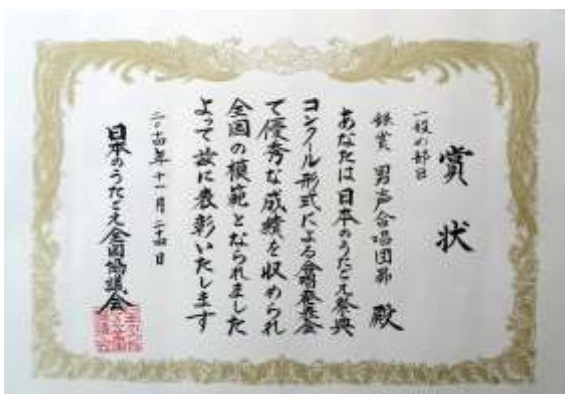 賞状
一般の部B
銀賞 男声合唱団昴 殿
あなたは日本のうたごえ祭典
コンクール形式による合唱発表会
で優秀な成績を収められ
全国の模範となられました
よって茲に表彰いたします
二〇一四年十一月二十四日
日本のうたごえ全国協議会